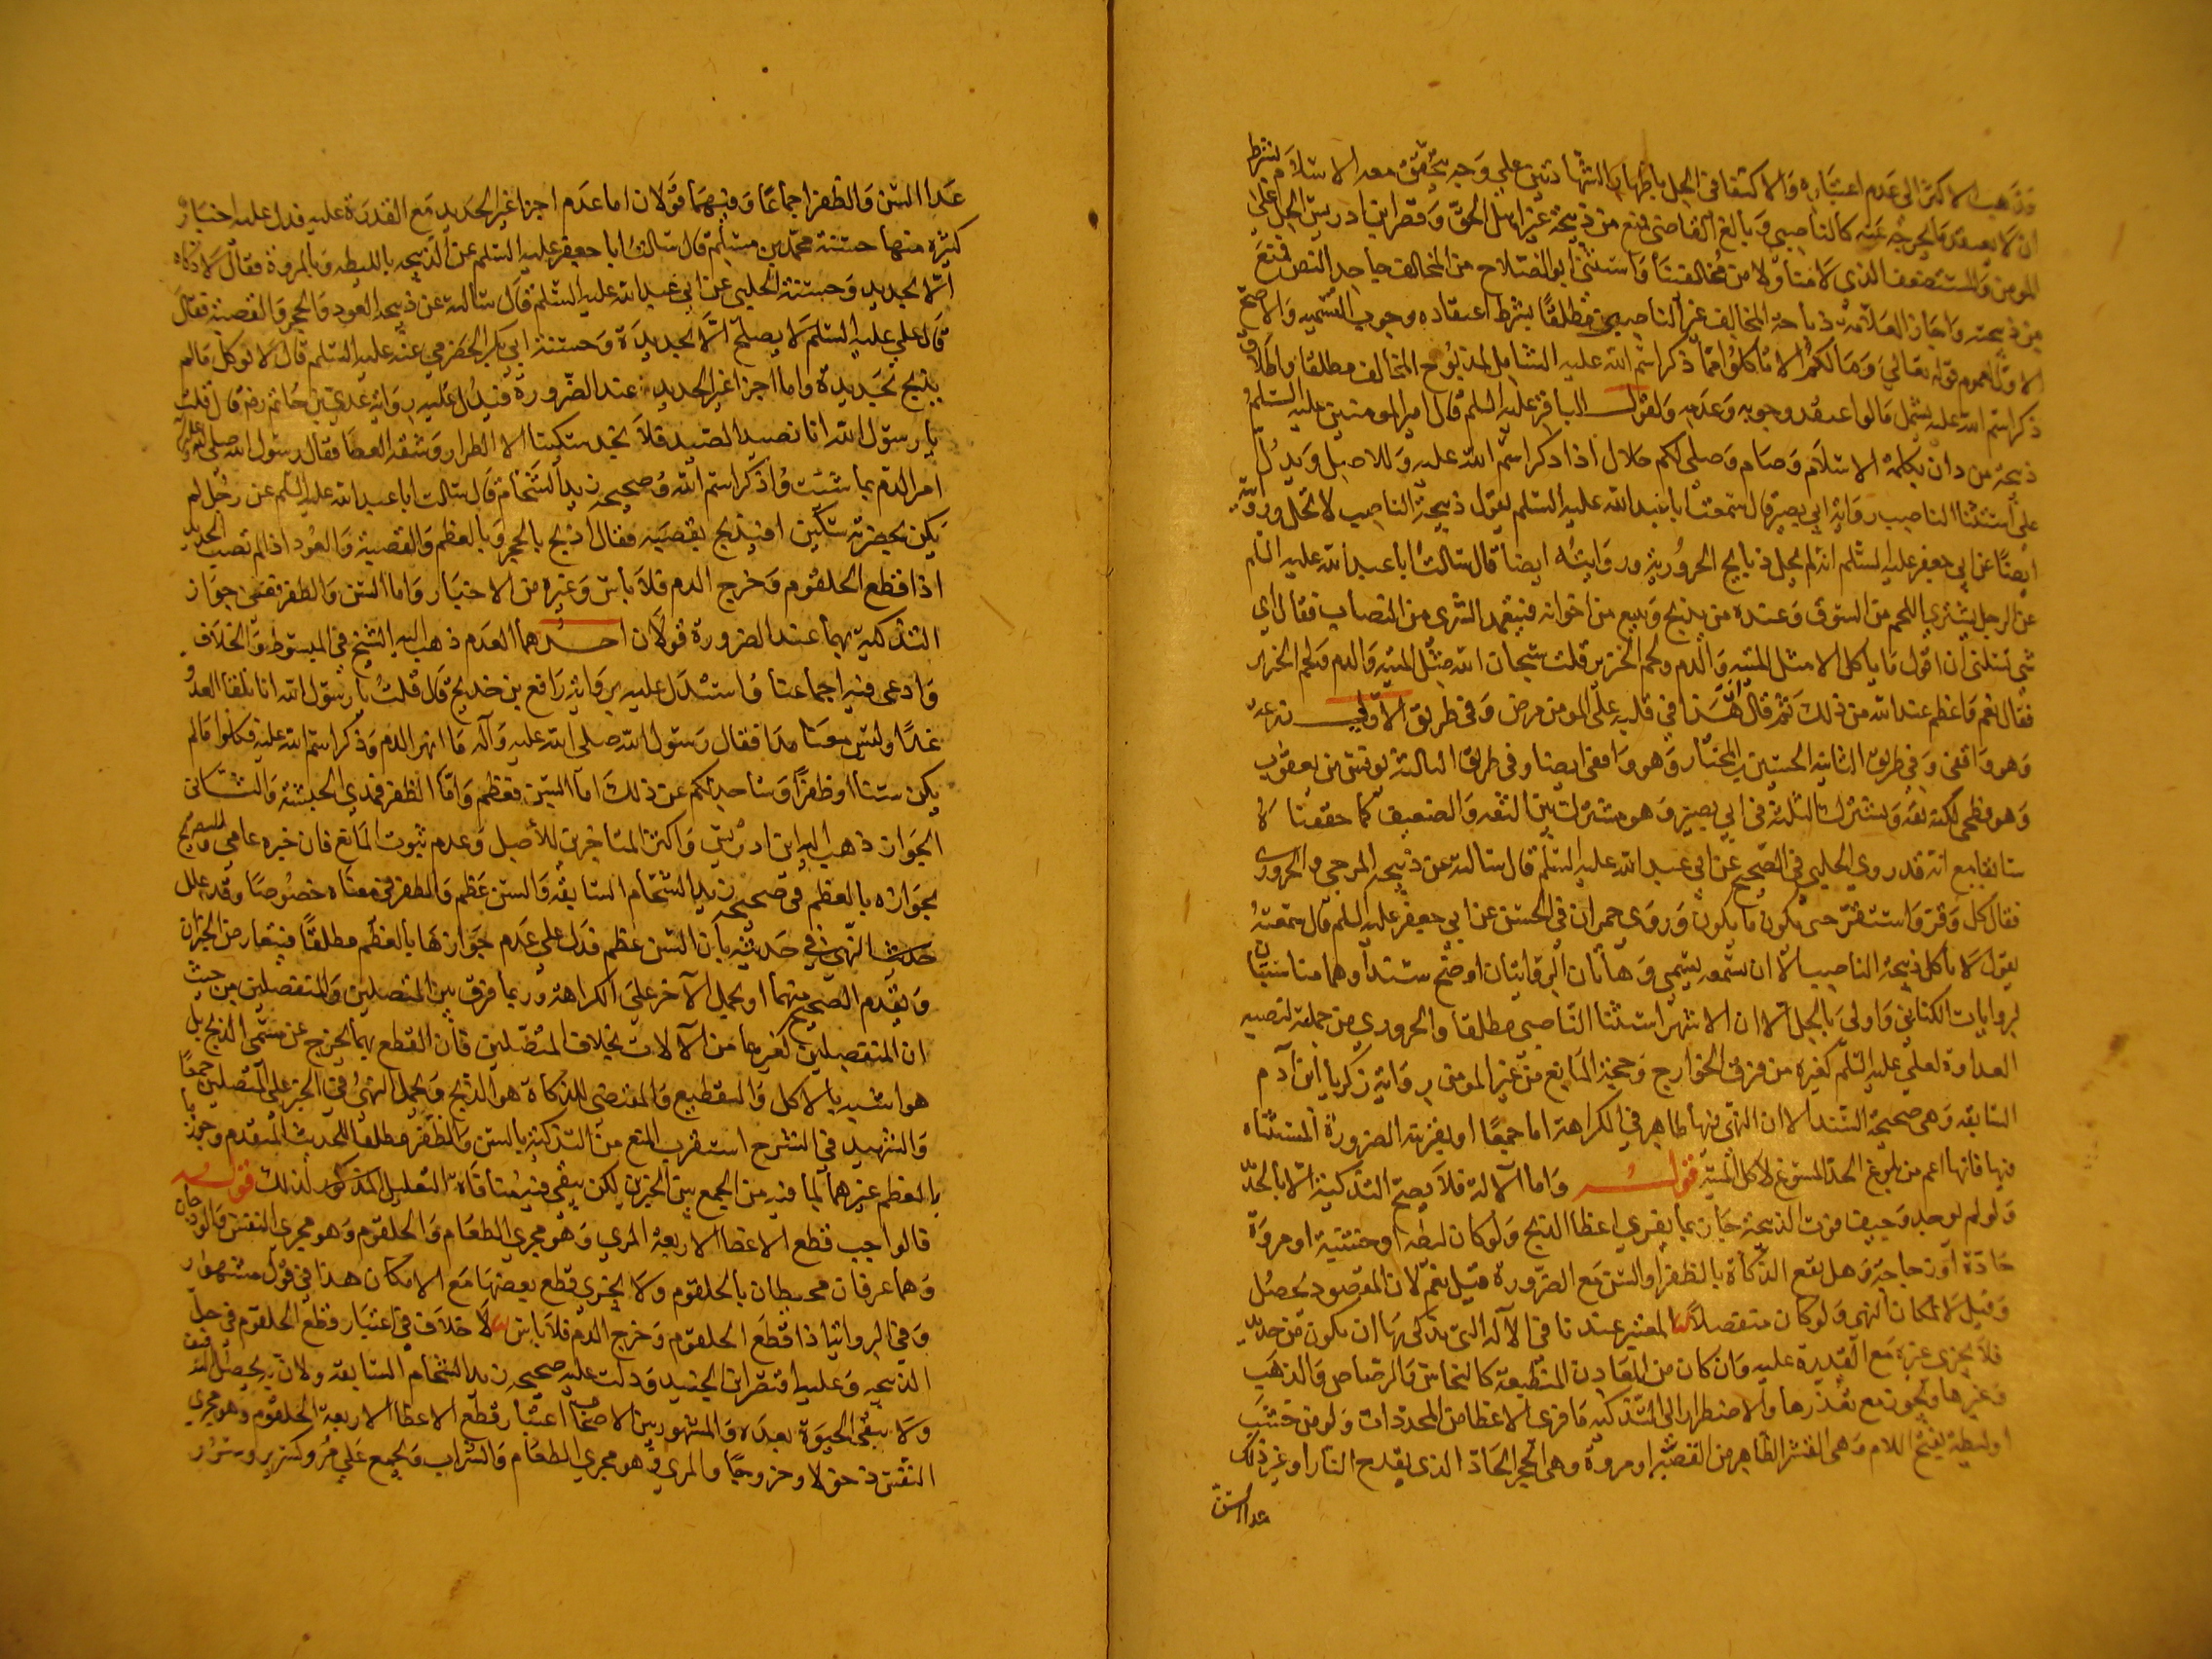 وذهب الاكثر الى عدم اعتباره والاكتفا في الحل باظهار الشهادتين على وجه يتحقق معه الاسلام بشرط
ان لا يعتقد ما يخرجه عنه كالناصبي وبالغ القاضي فمنع من ذبيحة غير اهل الحق وقصر ابن ادريس الحل على
المومن والمستضعف الذي لا منا ولا من مخالفينا واستثنى ابو الصلاح من المخالف جاحد النص فمنع
من ذبيحته واجاز العلامة ذباحة المخالف غير الناصبي مطلقا بشرط اعتقاده وجوب التسمية والاصح
الاول لعموم قوله تعالى وما لكم الا تاكلوا مما ذكر اسم الله عليه الشامل لمذبوح المخالف مطلقا واطلاق
ذكر اسم الله عليه يشمل ما لو اعتقد وجوبه وعدمه ولقول الباقر عليه السلم قال امير المومنين عليه السلم
ذبيحة من دان بكلمة الاسلام وصام وصلى لكم حلال اذا ذكر اسم الله عليه وللاصل ويدل
على استثنا الناصب رواية ابي بصير قال سمعت ابا عبد الله عليه السلم يقول ذبيحة الناصب لا تحل وروايته
ايضا عن ابي جعفر عليه السلم انه لم يحل ذبايح الحرورية وروايته ايضا قال سالت ابا عبد الله عليه السلم
عن الرجل يشتري اللحم من السوق وعنده من يذبح ويبيع من اخوانه فيتعمد الشرى من النصاب فقال اي
شي تسئلني ان اقول ما ياكل الا مثل الميتة والدم ولحم الخنزير قلت سبحان الله مثل الميتة والدم ولحم الخنزير
فقال نعم واعظم عند الله من ذلك ثم قال ان هذا في قلبه على المومن مرض وفي طريق الاولى زرعة
وهو واقفي وفي طريق الثانية الحسين بن المختار وهو واقفي ايضا وفي طريق الثالثة يونس بن يعقوب
وهو فطحي لكنه ثقة ويشترك الثلثة في ابي بصير وهو مشترك بين الثقة والضعيف كما حققناه
سابقا مع انه قد روى الحلبي في الصحيح عن ابي عبد الله عليه السلم قال سالته عن ذبيحة المرجي والحروري
فقال كل وقر واستقر حتى يكون ما يكون وروى حمران في الحسن عن ابي جعفر عليه السلم قال سمعته
يقول لا تاكل ذبيحة الناصب الا ان تسمعه يسمي وهاتان الروايتان اوضح سندا وهما مناسبتان
لروايات الكتابي واولى بالحل الا ان الاشهر استثنا الناصبي مطلقا والحروري من جملته لنصبه
العداوة لعلي عليه السلم كغيره من فرق الخوارج وحجة المانع من غير المومن رواية زكريا ابن آدم
السابقة وهي صحيحة السند الا ان النهي فيها ظاهر في الكراهة اما جمعا او بقرينة الضرورة المستثناه
فيها فانها اعم من بلوغ الحد المسوغ لاكل الميتة قوله واما الآلة فلا يصح التذكية الا بالحديد
ولو لم يوجد وخيف فوت الذبيحة جاز بما يفري اعضا الذبح ولو كان ليطه او خشبة او مروة
حادة او زجاجة وهل تقع الذكاة بالظفر او السن مع الضرورة قيل نعم لان المقصود يحصل
وقيل لا لمكان النهي ولو كان منفصلا المعتبر عندنا في الآلة التي يذكى بها ان يكون من حديد
فلا يجزي غيره مع القدرة عليه وان كان من المعادن المنطبعة كالنحاس والرصاص والذهب
وغيرها ويجوز مع تعذرها والاضطرار الى التذكية ما فرى الاعضا من المحددات ولو من خشب
او ليطة بفتح اللام وهي القشر الظاهر من القصب او مروة وهي الحجر الحاد الذي يقدح النار او غير ذلك
عدا السن
عدا السن والظفر اجماعا وفيهما قولان اما عدم اجزا غير الحديد مع القدرة عليه فدل عليه اخبار
كثيرة منها حسنة محمد بن مسلم قال سالت ابا جعفر عليه السلم عن الذبيحة بالليطة وبالمروة فقال لا ذكاه
الا بحديد وحسنة الحلبي عن ابي عبد الله عليه السلم قال سالته عن ذبيحة العود والحجر والقصبة فقال
قال علي عليه السلم لا يصلح الا بحديدة وحسنة ابي بكر الحضرمي عنه عليه السلم قال لا توكل ما لم
يذبح بحديدة واما اجزا غير الحديد عند الضرورة فيدل عليه رواية عدي بن حاتم رض قال قلت
يا رسول الله انا نصيد الصيد فلا نجد سكينا الا الظرار وشقة العصا فقال رسول الله صلى الله عليه وآله
امر الدم بما شئت واذكر اسم الله وصحيحة زيد الشحام قال سالت ابا عبد الله عليه السلم عن رجل لم
يكن بحضرته سكين افيذبح بقصبه فقال اذبح بالحجر وبالعظم والقصبة والعود اذا لم تصب الحديد
اذا قطع الحلقوم وخرج الدم فلا باس وغيره من الاخبار واما السن والظفر ففي جواز
التذكية بهما عند الضرورة قولان احدهما العدم ذهب اليه الشيخ في المبسوط والخلاف
وادعى فيه اجماعنا واستدل عليه برواية رافع بن خديج قال قلت يا رسول الله انا نلقى العدو
غدا وليس معنا مدا فقال رسول الله صلى الله عليه وآله ما انهر الدم وذكر اسم الله عليه فكلوا ما لم
يكن سنا او ظفرا وساحدثكم عن ذلك اما السن فعظم واما الظفر فمدي الحبشة والثاني
الجواز ذهب اليه ابن ادريس واكثر المتاخرين للأصل وعدم ثبوت المانع فان خبره عامي والتصريح
بجوازه بالعظم في صحيحة زيد الشحام السابقة والسن عظم والظفر في معناه خصوصا وقد علل
حديث النهي في حديثه بان السن عظم فدل على عدم جوازها بالعظم مطلقا فيتعارض الخبران
ويقدم الصحيح منهما او يحمل الآخر على الكراهة وربما فرق بين المتصلين والمنفصلين من حيث
ان المنفصلين كغيرهما من الآلات بخلاف المتصلين فان القطع بهما يخرج عن مسمى الذبح بل
هو اشبه بالاكل والتقطيع والمقتضي للذكاة هو الذبح ويحمل النهي في الخبر على المتصلين جمعا
والشهيد في الشرح استقرب المنع من التذكية بالسن والظفر مطلقا للحديث المتقدم وجوزها
بالعظم غيرهما لما فيه من الجمع بين الخبرين لكن يبقى فيه منافاة التعليل المذكور لذلك قوله
قالوا جب قطع الاعضا الاربعة المري وهو مجرى الطعام والحلقوم وهو مجرى النفس والودجان
وهما عرقان محيطان بالحلقوم ولا يجزي قطع بعضها مع الامكان هذا في قول مشهور
وفي الرواية اذا قطع الحلقوم وخرج الدم فلا باس لا خلاف في اعتبار قطع الحلقوم في حل
الذبيحة وعليه اقتصر ابن الجنيد ودلت عليه صحيحة زيد الشحام السابقة ولان به يحصل التذفيف
ولا يبقى الحيوة بعده والمشهور بين الاصحاب اعتبار قطع الاعضا الاربعة الحلقوم وهو مجرى
النفس دخولا وخروجا والمري وهو مجرى الطعام والشراب ويجمع على مرؤ كسرير وسرر